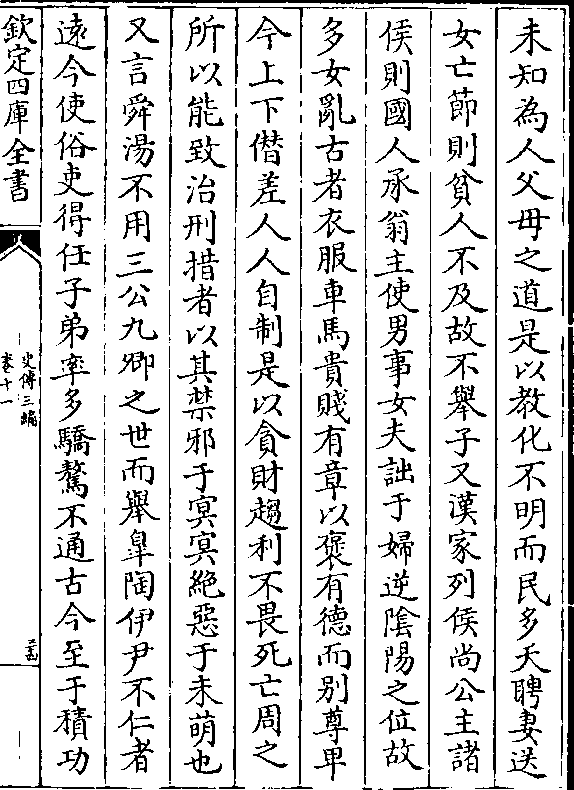 未知為人父母之道是以教化不明而民多夭聘妻送
女亡節則貧人不及故不舉子又漢家列侯尚公主諸
侯則國人承翁主使男事女夫詘于婦逆陰陽之位故
多女亂古者衣服車馬貴賤有章以褒有德而别尊卑
今上下僭差人人自制是以貪財趨利不畏死亡周之
所以能致治刑措者以其禁邪于冥冥絶惡于未萌也
又言舜湯不用三公九卿之世而舉臯陶伊尹不仁者
遠今使俗吏得任子弟率多驕驁不通古今至于積功
欽定四庫全書
史傳三編
卷十一